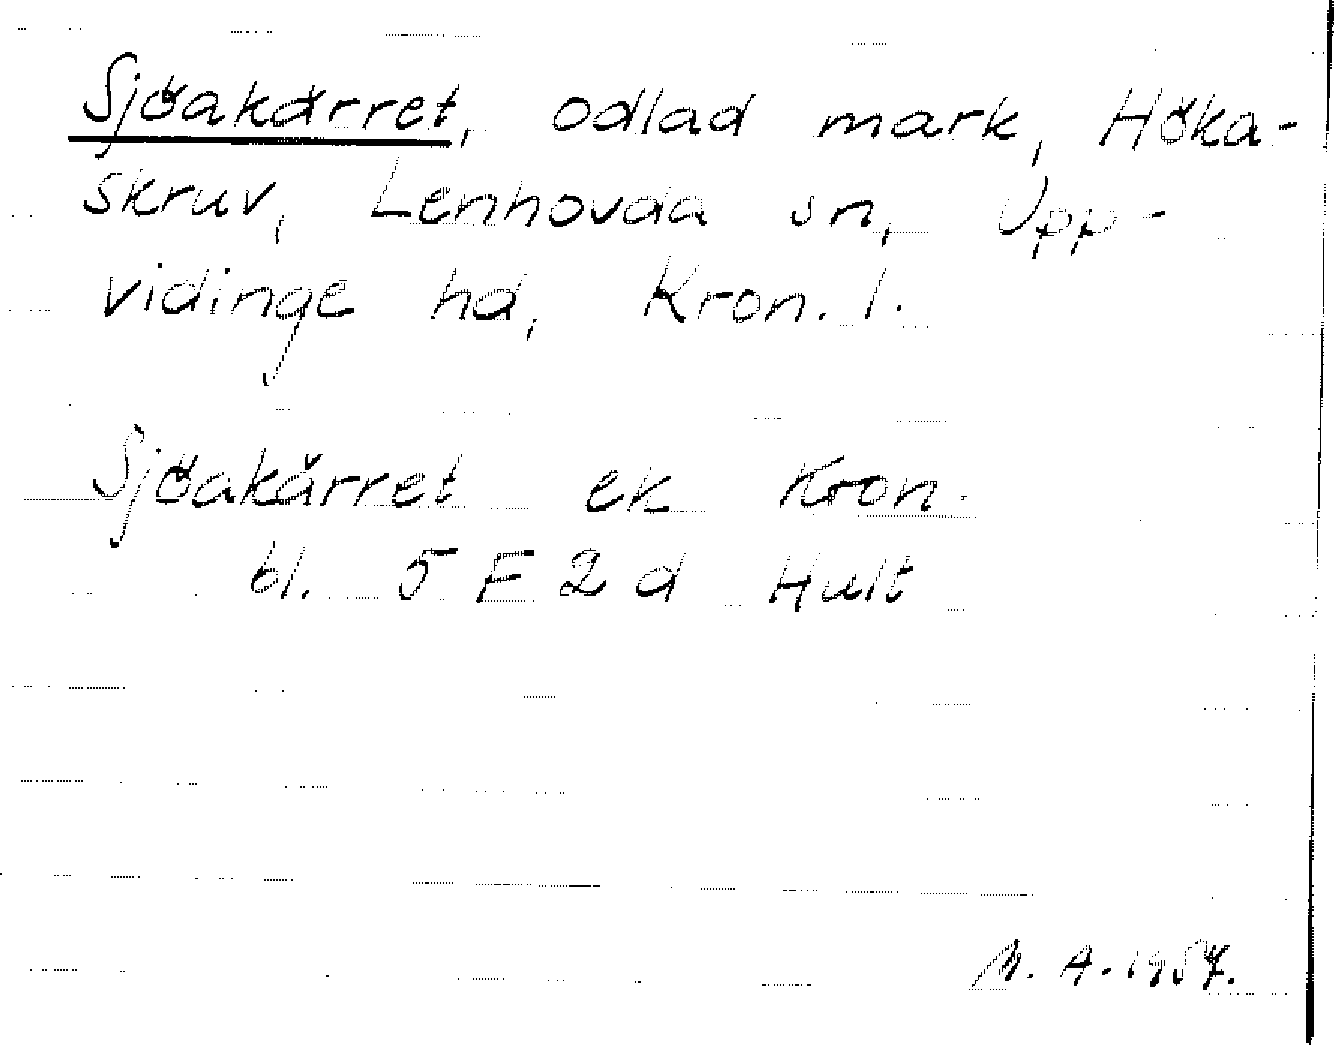 Sjöakärret, odlad mark, Höka-
skruv, Lenhovda sn, Upp-
vidinge hd, Kron. l.
Sjöakärret ek Kron.
bl. 5 F 2 d Hult
M. A. 1957.